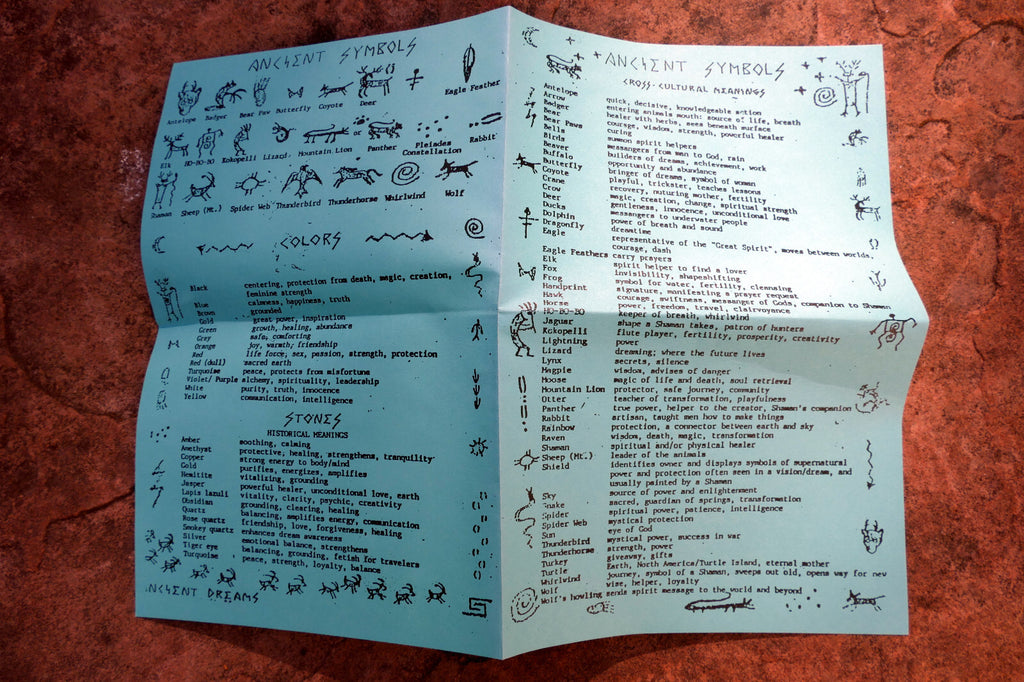 ANCIENT SYMBOLS
Eagle Feather
Antelope Badger Bear Paw Butterfly Coyote Deer
or
Elk HO-BO-BO Kokopelli Lizard Mountain Lion Panther Pleiades Constellation Rabbit
Shaman Sheep (Mt.) Spider Web Thunderbird Thunderhorse Whirlwind Wolf
COLORS
Black centering, protection from death, magic, creation,
feminine strength
Blue calmness, happiness, truth
Brown grounded
Gold great power, inspiration
Green growth, healing, abundance
Grey safe, comforting
Orange joy, warmth, friendship
Red life force, sex, passion, strength, protection
Red (dull) sacred earth
Turquoise peace, protects from misfortune
Violet/ Purple alchemy, spirituality, leadership
White purity, truth, innocence
Yellow communication, intelligence
STONES
HISTORICAL MEANINGS
Amber soothing, calming
Amethyst protective, healing, strengthens, tranquility
Copper strong energy to body/mind
Gold purifies, energizes, amplifies
Hemitite vitalizing, grounding
Jasper powerful healer, unconditional love, earth
Lapis lazuli vitality, clarity, psychic, creativity
Obsidian grounding, clearing, healing
Quartz balancing, amplifies energy, communication
Rose quartz friendship, love, forgiveness, healing
Smokey quartz enhances dream awareness
Silver emotional balance, strengthens
Tiger eye balancing, grounding, fetish for travelers
Turquoise peace, strength, loyalty, balance
ANCIENT DREAMS
ANCIENT SYMBOLS
CROSS-CULTURAL MEANINGS
Antelope quick, decisive, knowledgeable action
Arrow entering animals mouth: source of life, breath
Badger healer with herbs, sees beneath surface
Bear courage, wisdom, strength, powerful healer
Bear Paws curing
Bells summon spirit helpers
Birds messengers from man to God, rain
Beaver builders of dreams, achievement, work
Buffalo opportunity and abundance
Butterfly bringer of dreams, symbol of woman
Coyote playful, trickster, teaches lessons
Crane recovery, nuturing mother, fertility
Crow magic, creation, change, spiritual strength
Deer gentleness, innocence, unconditional love
Ducks messengers to underwater people
Dolphin power of breath and sound
Dragonfly dreamtime
Eagle representative of the "Great Spirit", moves between worlds,
courage, dash
Eagle Feathers carry prayers
Elk spirit helper to find a lover
Fox invisibility, shapeshifting
Frog symbol for water, fertility, cleansing
Handprint signature, manifesting a prayer request
Hawk courage, swiftness, messenger of Gods, companion to Shaman
Horse power, freedom, travel, clairvoyance
HO-BO-BO keeper of breath, whirlwind
Jaguar shape a Shaman takes, patron of hunters
Kokopelli flute player, fertility, prosperity, creativity
Lightning power
Lizard dreaming; where the future lives
Lynx secrets, silence
Magpie wisdom, advises of danger
Moose magic of life and death, soul retrieval
Mountain Lion protector, safe journey, community
Otter teacher of transformation, playfulness
Panther true power, helper to the creator, Shaman's companion
Rabbit artisan, taught men how to make things
Rainbow protection, a connector between earth and sky
Raven wisdom, death, magic, transformation
Shaman spiritual and/or physical healer
Sheep (Mt.) leader of the animals
Shield identifies owner and displays symbols of supernatural
power and protection often seen in a vision/dream, and
usually painted by a Shaman
Sky source of power and enlightenment
Snake sacred, guardian of springs, transformation
Spider spiritual power, patience, intelligence
Spider Web mystical protection
Sun eye of God
Thunderbird mystical power, success in war
Thunderhorse strength, power
Turkey giveaway, gifts
Turtle Earth, North America/Turtle Island, eternal mother
Whirlwind journey, symbol of a Shaman, sweeps out old, opens way for new
Wolf wise, helper, loyalty
Wolf's howling sends spirit message to the world and beyond